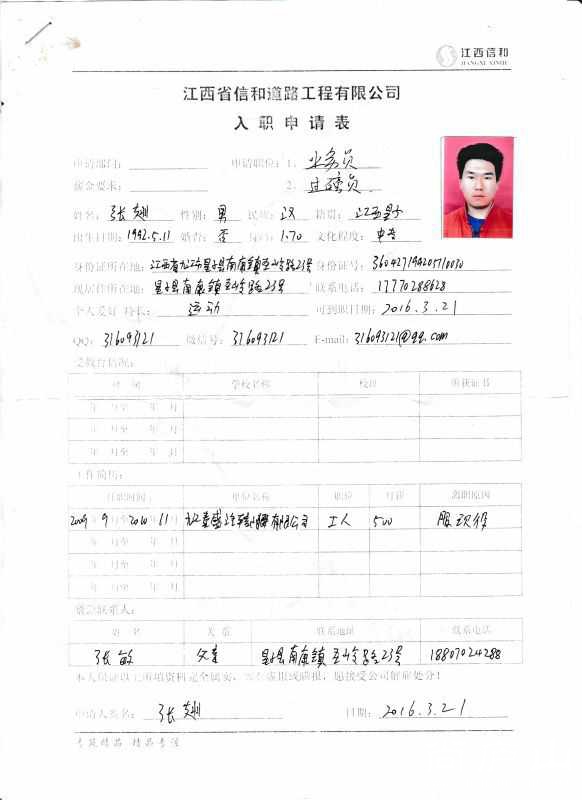 江西信和
JIANGXI XINHE
江西省信和道路工程有限公司
入职申请表
申请部门： 申请职位：1、业务员
薪金要求： 2、过磅员
姓名：张 性别：男 民族：汉 籍贯：江西星子
出生日期：1992.5.11 婚否：否 身高：1.70 文化程度：中专
身份证所在地：江西省九江市星子县南康镇玉岭路23号 身份证号：360427199205110030
现居住所在地：星子县南康镇玉岭路23号 联系电话：17770288628
个人爱好 特长：运动 可到职日期：2016.3.21
QQ：316093121 微信号：316093121 E-mail：316093121@qq.com
受教育情况：
时 间 学校名称 校址 所获证书
年 月至 年 月
年 月至 年 月
年 月至 年 月
工作简历：
任职时间 单位名称 职位 月薪 离职原因
2009年9月至2010年11月 九江 有限公司 工人 500 服现役
年 月至 年 月
年 月至 年 月
年 月至 年 月
紧急联系人：
姓 名 关 系 联系地址 联系电话
张敏 父亲 星子县南康镇玉岭路23号 18807024288
本人保证以上所填资料完全属实，如有虚报或瞒报，愿接受公司解雇处分！
申请人签名：张 日期：2016.3.21
专筑精品 精品专筑